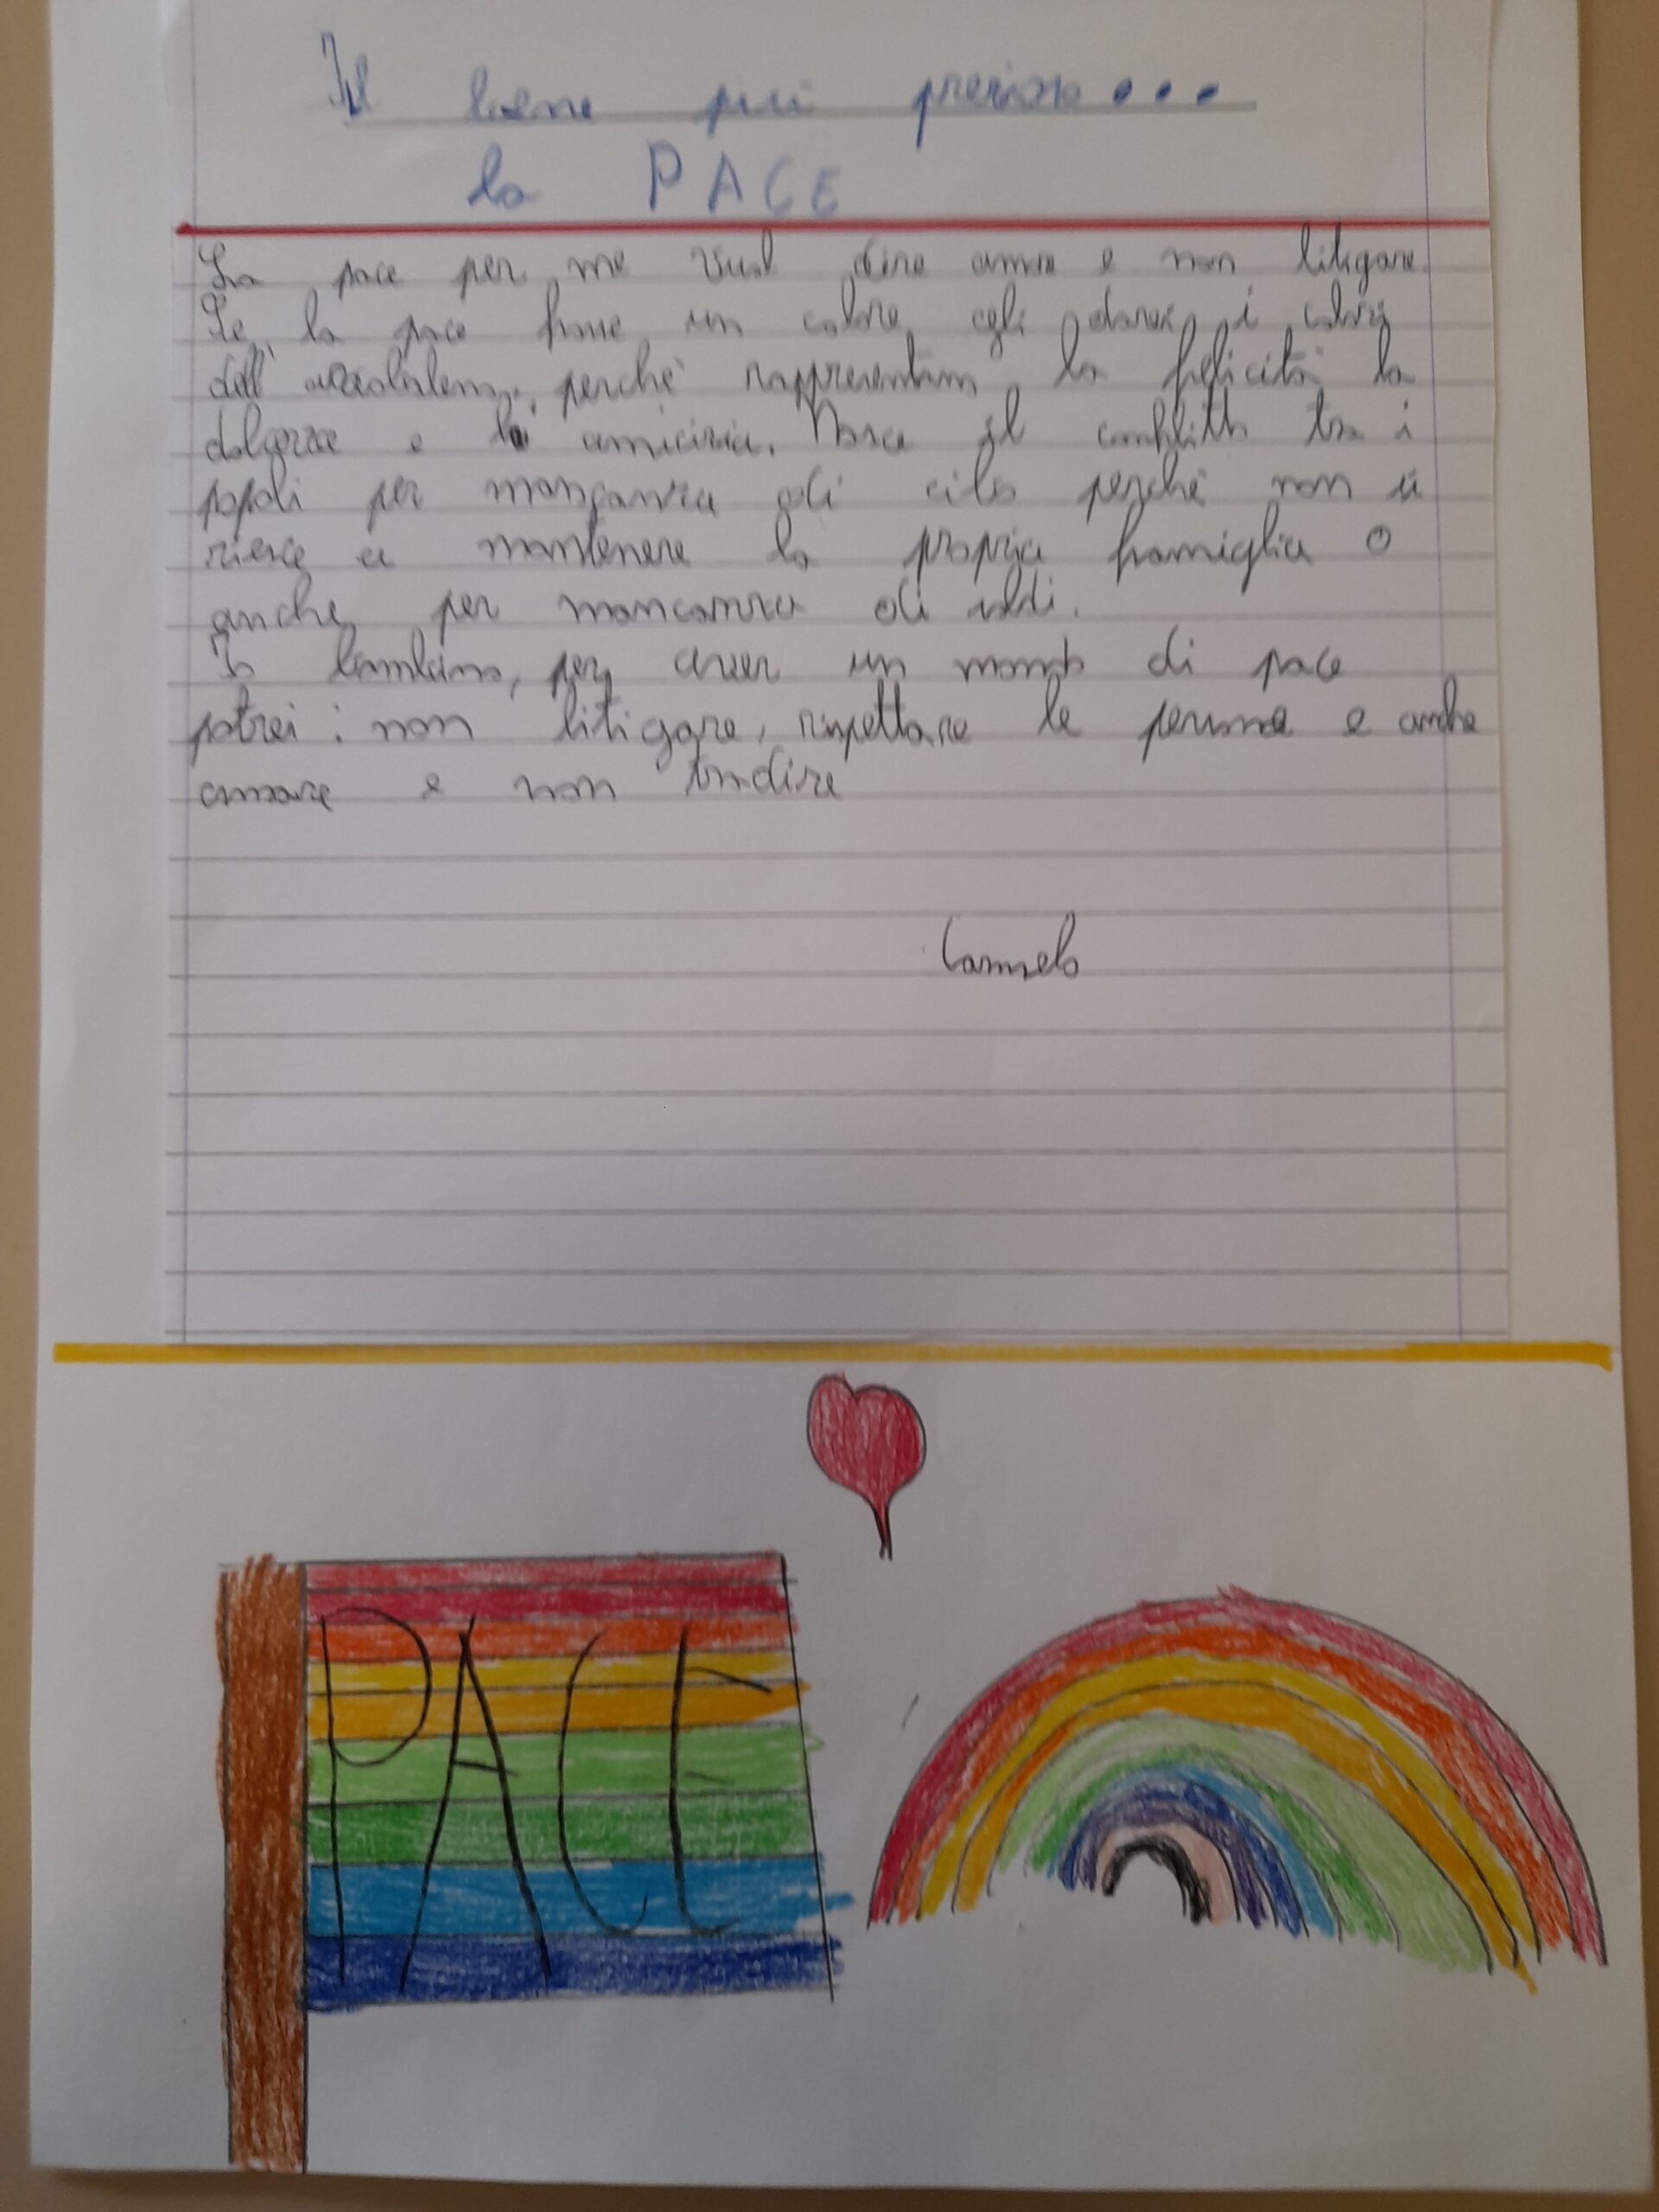 Il bene più prezioso...
la PACE
La pace per me vuol dire amore e non litigare.
Se la pace fosse un colore, gli darei i colori
dell'arcobaleno, perché rappresentano la felicità la
dolcezza e la amicizia. Nasce il conflitto tra i
popoli per mancanza di cibo perché non si
riesce a mantenere la propria famiglia o
anche per mancanza di soldi.
Io bambino, per creare un mondo di pace
potrei: non litigare, rispettare le persone e anche
amare e non tradire
Carmelo
PACE